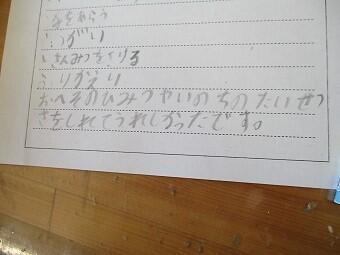 ・手をあらう
・うがい
・さんみつをさける
ふりかえり
おへそのひみつやいのちのたいせつ
さをしれてうれしかったです。